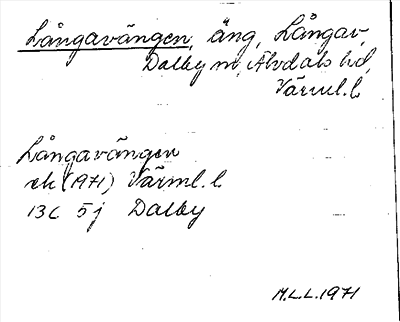 Långavängen, äng, Långav,
Dalby sn, Älvdals hd,
Värml. l.
Långavängen
ek (1971) Värml. l.
13C 5j Dalby
M.L.L. 1971